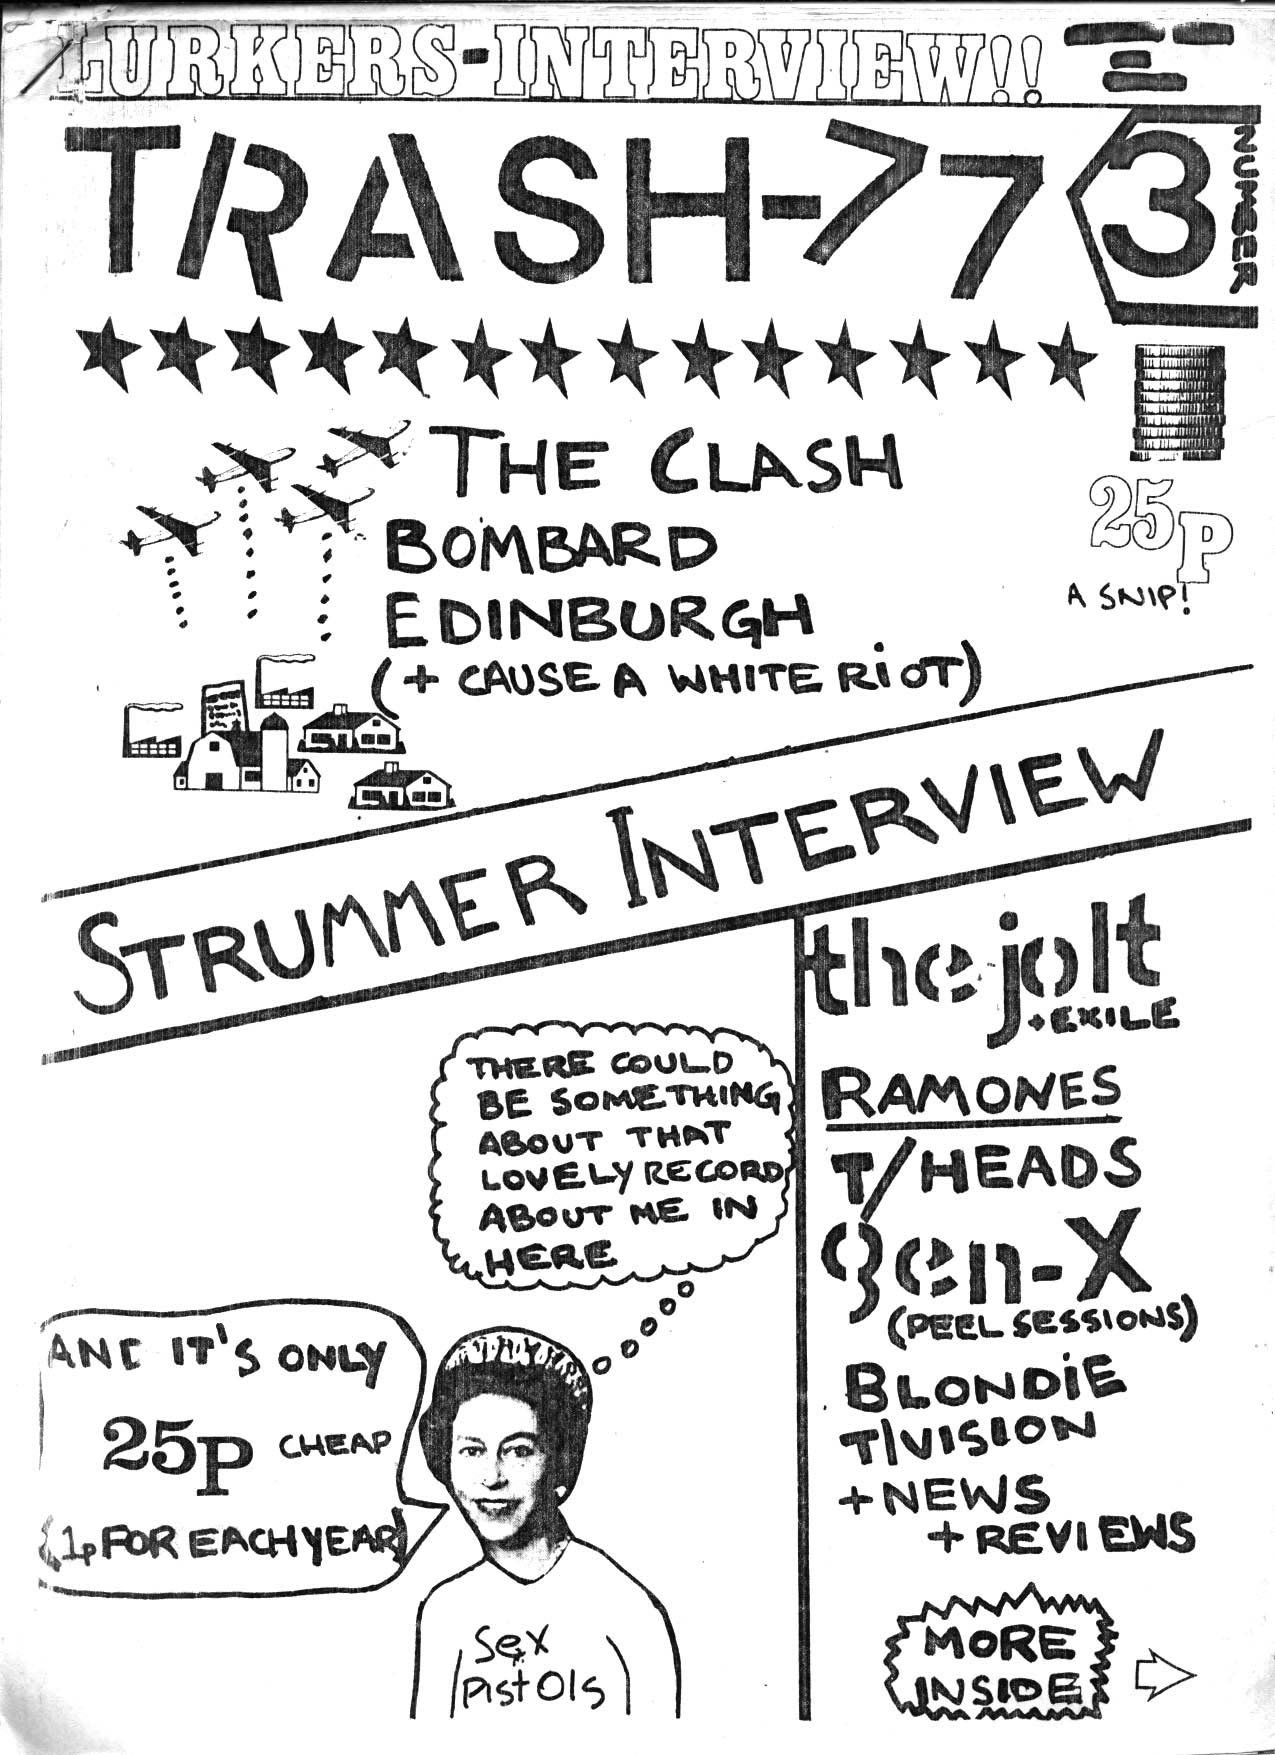 LURKERS-INTERVIEW!!
TRASH-77
3
NUMBER
25p
A SNIP!
THE CLASH
BOMBARD
EDINBURGH
(+ CAUSE A WHITE RiOT)
STRUMMER INTERVIEW
the jolt
+EXILE
RAMONES
T/HEADS
gen-X
(PEEL SESSIONS)
BLONDiE
T\VISION
+NEWS
+REVIEWS
MORE
INSIDE
THERE COULD
BE SOMETHING
ABOUT THAT
LOVELY RECORD
ABOUT ME IN
HERE
AND IT'S ONLY
25p CHEAP
(1p FOR EACH YEAR)
Sex
pistols